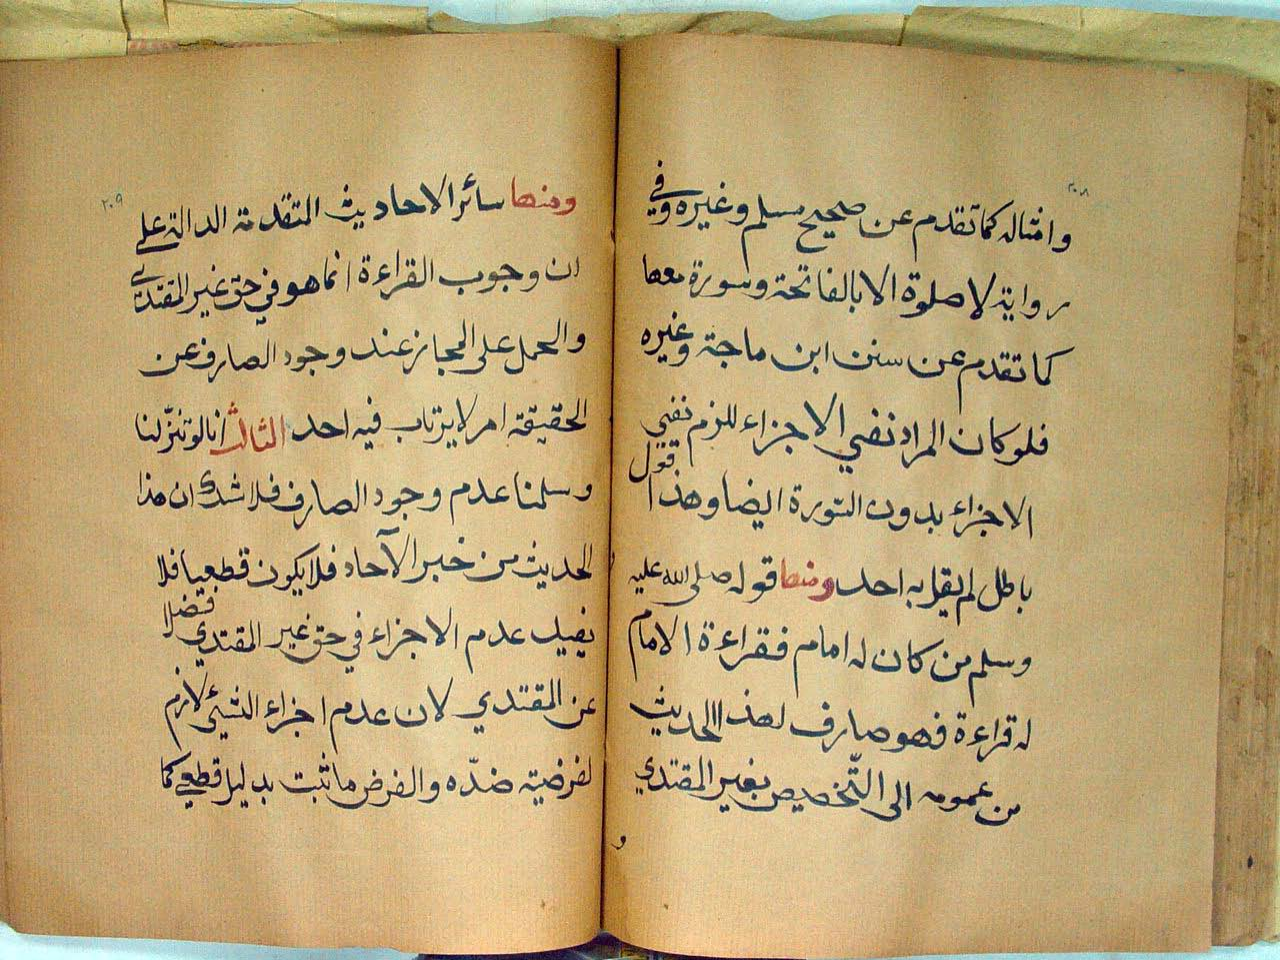 ٢٠٨
وامثاله كما تقدم عن صحيح مسلم وغيره وفي
رواية لا صلوة الا بالفاتحة وسورة معها
كما تقدم عن سنن ابن ماجة وغيره
فلو كان المراد نفي الاجزاء للزم نفي
الاجزاء بدون السورة ايضا وهذا قول
باطل لم يقل به احد ومنها قوله صلى الله عليه
وسلم من كان له امام فقراءة الامام
له قراءة فهو صارف لهذا الحديث
من عمومه الى التّخصيص بغير المقتدي
و
٢٠٩
ومنها سائر الاحاديث المتقدمة الدالة على
ان وجوب القراءة انما هو في حق غير المقتدي
والحمل على المجاز عند وجود الصارف عن
الحقيقة امر لا يرتاب فيه احد الثالث انا لو تنزّلنا
وسلمنا عدم وجود الصارف فلا شك ان هذا
الحديث من خبر الآحاد فلا يكون قطعيا فلا
يفيد عدم الاجزاء في حق غير المقتدي فضلا
عن المقتدي لان عدم اجزاء الشيئ لازم
لفرضية ضدّه والفرض ما ثبت بدليل قطعي كما